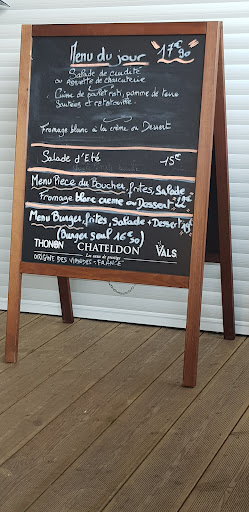 Menu du jour 17€90
Salade de crudité
ou Assiette de charcuterie
Cuisse de poulet roti, pomme de terre
Sautées et ratatouille.
Fromage blanc a la crème ou Dessert
Salade d'Eté 15€
Menu Piece du Boucher, frites, Salade
Fromage blanc creme ou Dessert 22€
Menu Burger, frites, Salade + Dessert
(Burger seul 16€50)
THONON CHATELDON VALS
ORIGINE DES VIANDES : FRANCE